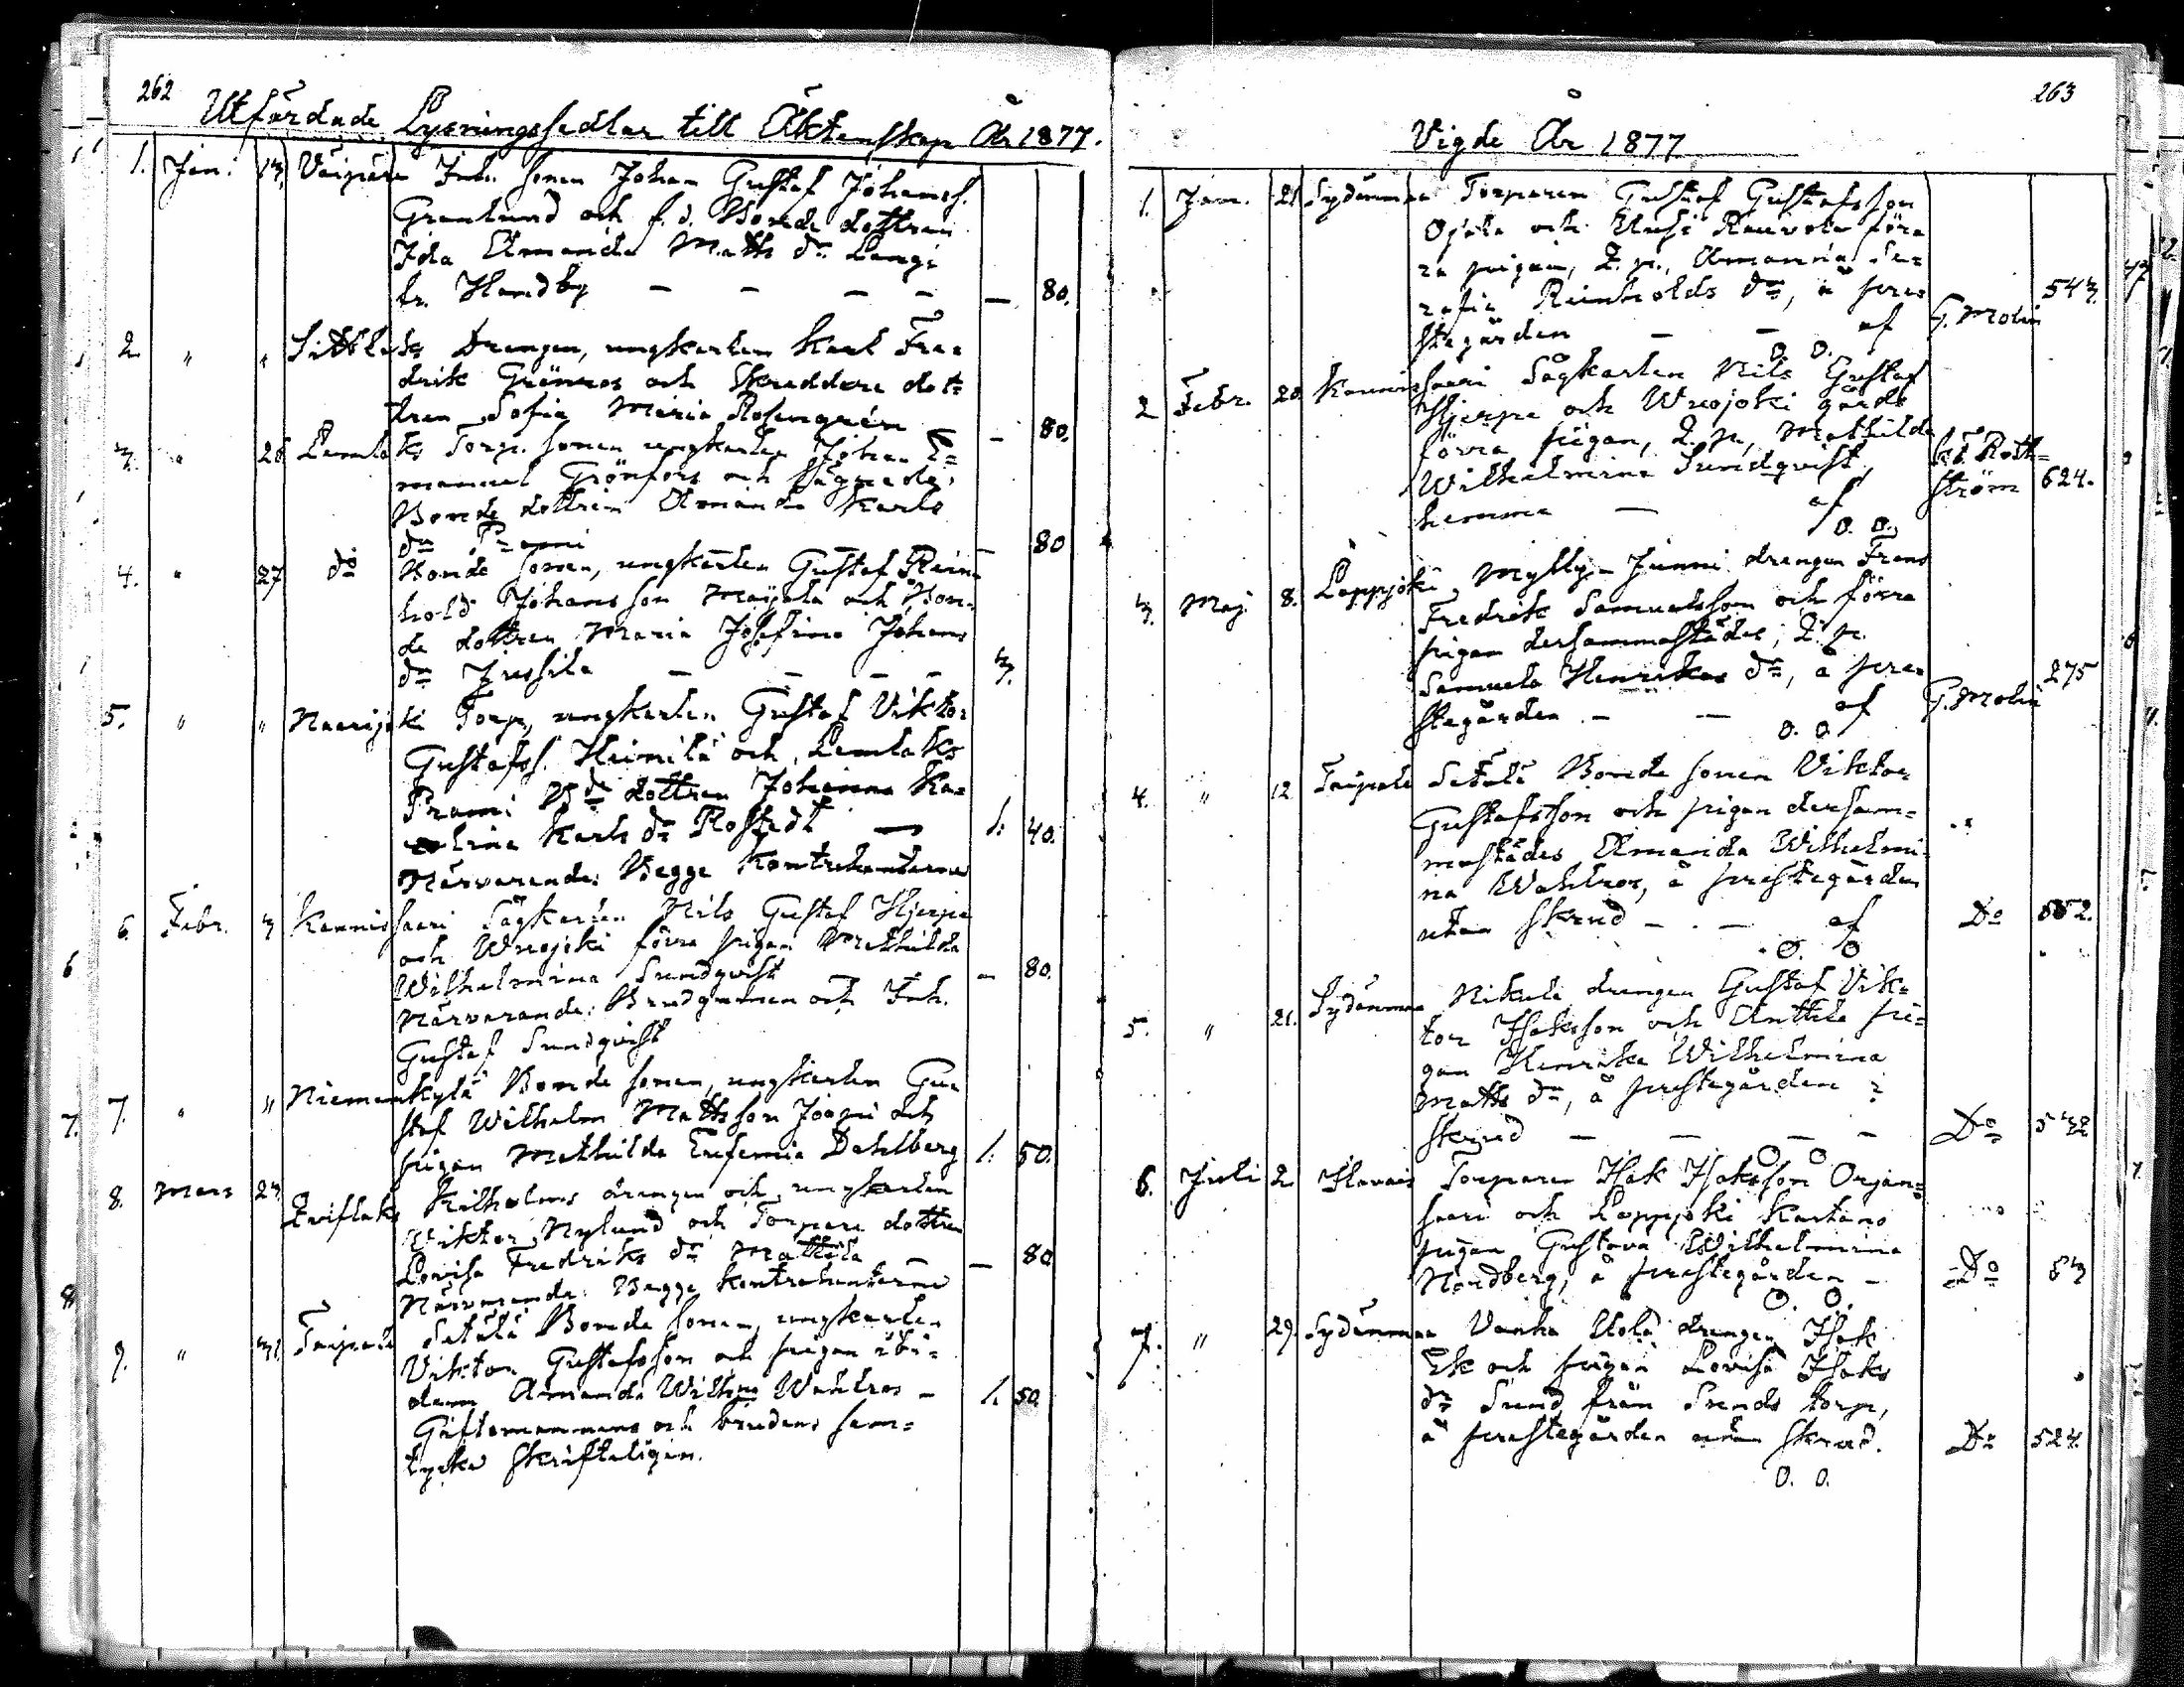 262
Utfärdade Lysningssedlar till Äktenskap År 1877.
1. Jan: 13. Väipär Inh. sonen Johan Gustaf Johanss.
Granlund och f. d. Bonde dottren
Ida Amanda Matts dr Langi
fr. Handby — — — — — 80.
2. " " Sittlaks Drengen, ungkarlen Karl Fre=
drik Grönroos och Skreddare dot=
tren Sofia Maria Rosengren — 80.
3. " 26 Lemlaks Torp. sonen ungkarlen Johan E=
manuel Grönfors och
Bonde dottren Amanda Karls
dr Prami — — 80
4. " 27 do Bonde sonen, ungkarlen Gustaf Rein
hold Johansson Maijala och Bon=
de dottren Maria Josefina Johans
dr Jussila — — — — 3.
5. " " Naarjoki Torp, ungkarlen Gustaf Viktor
Gustafss. Heinilä och Lemlaks
Prami Bde dottren Johanna Ka=
rolina Karls dr Rostedt — 1: 40.
Närvarande: Begge Kontrahenterne
6. Febr. 3 Kannissaari Sågkarlen Nils Gustaf Hjerpe
och Wuojoki förra pigan Mathilda
Wilhelmina Sundqvist — 80.
Närvarande: Brudgummen och Inh.
Gustaf Sundqvist
7. " " Niemenkylä Bonde sonen, ungkarlen Gu=
staf Wilhelm Mattsson Jaapri och
pigan Mathilda Eufemia Dahlberg 1: 50.
8. Mars 23 Lviflaks Kilholms drengen och ungkarlen
Viktor Nylund och Torpare dottren
Lovisa Fredriks dr Mattila — 80
Närvarande: Begge Kontrahenterne
9. " 31. Taipale Setälä Bonde sonen, ungkarlen
Viktor Gustafsson och pigan ibi=
dem Amanda Wilhma Wahlros — 1. 50.
Giftomannens och brudens sam=
tycke skrifteligen.
263
Vigde År 1877
1. Jan. 21 Sydänmaa Torparen Gustaf Gustafsson
Ojala och Uusi Rauvola för=
ra pigan, Q. p., Amanda Se=
rafia Reinholds dr, å pre=
stegården — — af G. Molin 543.
O. O.
2 Febr. 20 Kannissaari Sågkarlen Nils Gustaf
Hjerpe och Wuojoki gårds
förra pigan, Q. p., Mathilda
Wilhelmina Sundqvist,
hemma — af Roth=
ström 624.
O. O.
3. Maj 8. Lappijoki Mylly-Junni drengen Frans
Fredrik Samuelsson och förra
pigan dersammastädes, Q. p.
Samuela Henrikas dr, å pre=
stegården — — af G. Molin 275
O. O.
4. " 12 Taipale Setälä Bonde sonen Viktor
Gustafsson och pigan dersam=
mastädes Amanda Wilhelmi=
na Wahlros, å prestegården
utan skrud — — af Do 552.
O. O
5. " 21. Sydänmaa Nikula drengen Gustaf Vik=
tor Isaksson och Anttila pi=
gan Henrika Wilhelmina
Matts dr, å prestegården i
skrud — — — — Do 532
O O
6. Juli 2 Ilavais Torparen Isak Isaksson Orjan=
saari och Lappjoki Kartano
pigan Gustava Wilhelmina
Nordberg, å prestegården — Do 53
O. O.
7. " 29. Sydänmaa Vanha Uola drengen Isak
Ek och pigan Lovisa Isaks
dr Sund från Sunds torp,
å prestegården utan skrud. Do 524.
O. O.